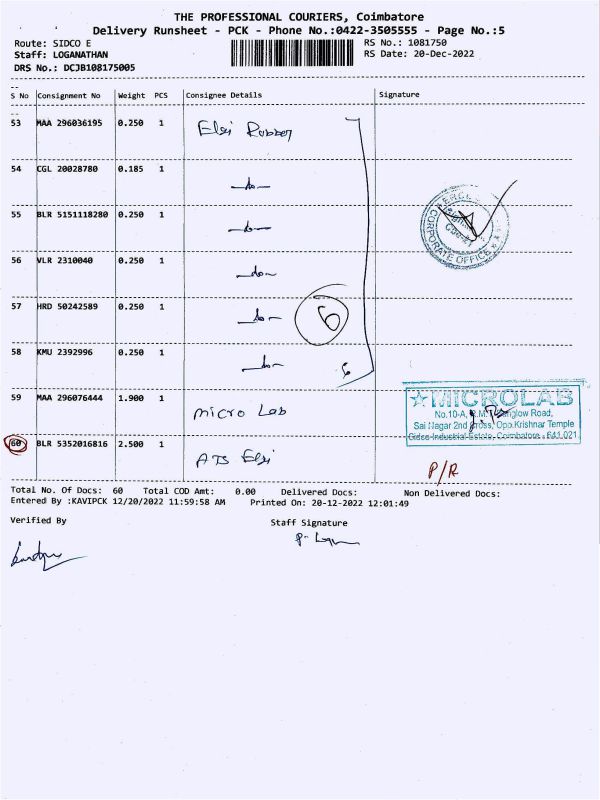 THE PROFESSIONAL COURIERS, Coimbatore
Delivery Runsheet - PCK - Phone No.:0422-3505555 - Page No.:5
Route: SIDCO E
RS No.: 1081750
Staff: LOGANATHAN
RS Date: 20-Dec-2022
DRS No.: DCJB108175005
S No Consignment No Weight PCS Consignee Details Signature
53 MAA 296036195 0.250 1 Elgi Rubber
54 CGL 20028780 0.185 1 -do-
55 BLR 5151118280 0.250 1 -do-
CORPORATE OFFICE
56 VLR 2310040 0.250 1 -do-
57 HRD 50242589 0.250 1 -do- 6
58 KMU 2392996 0.250 1 -do- 6
59 MAA 296076444 1.900 1 Micro Lab
MICROLAB
No.10-A, Road,
Sai Nagar 2nd Cross, Opp.Krishnar Temple
Sidco Industrial Estate, Coimbatore - 641 021
60 BLR 5352016816 2.500 1 ATS Elgi
P/R
Total No. Of Docs: 60 Total COD Amt: 0.00 Delivered Docs: Non Delivered Docs:
Entered By :KAVIPCK 12/20/2022 11:59:58 AM Printed On: 20-12-2022 12:01:49
Verified By Staff Signature